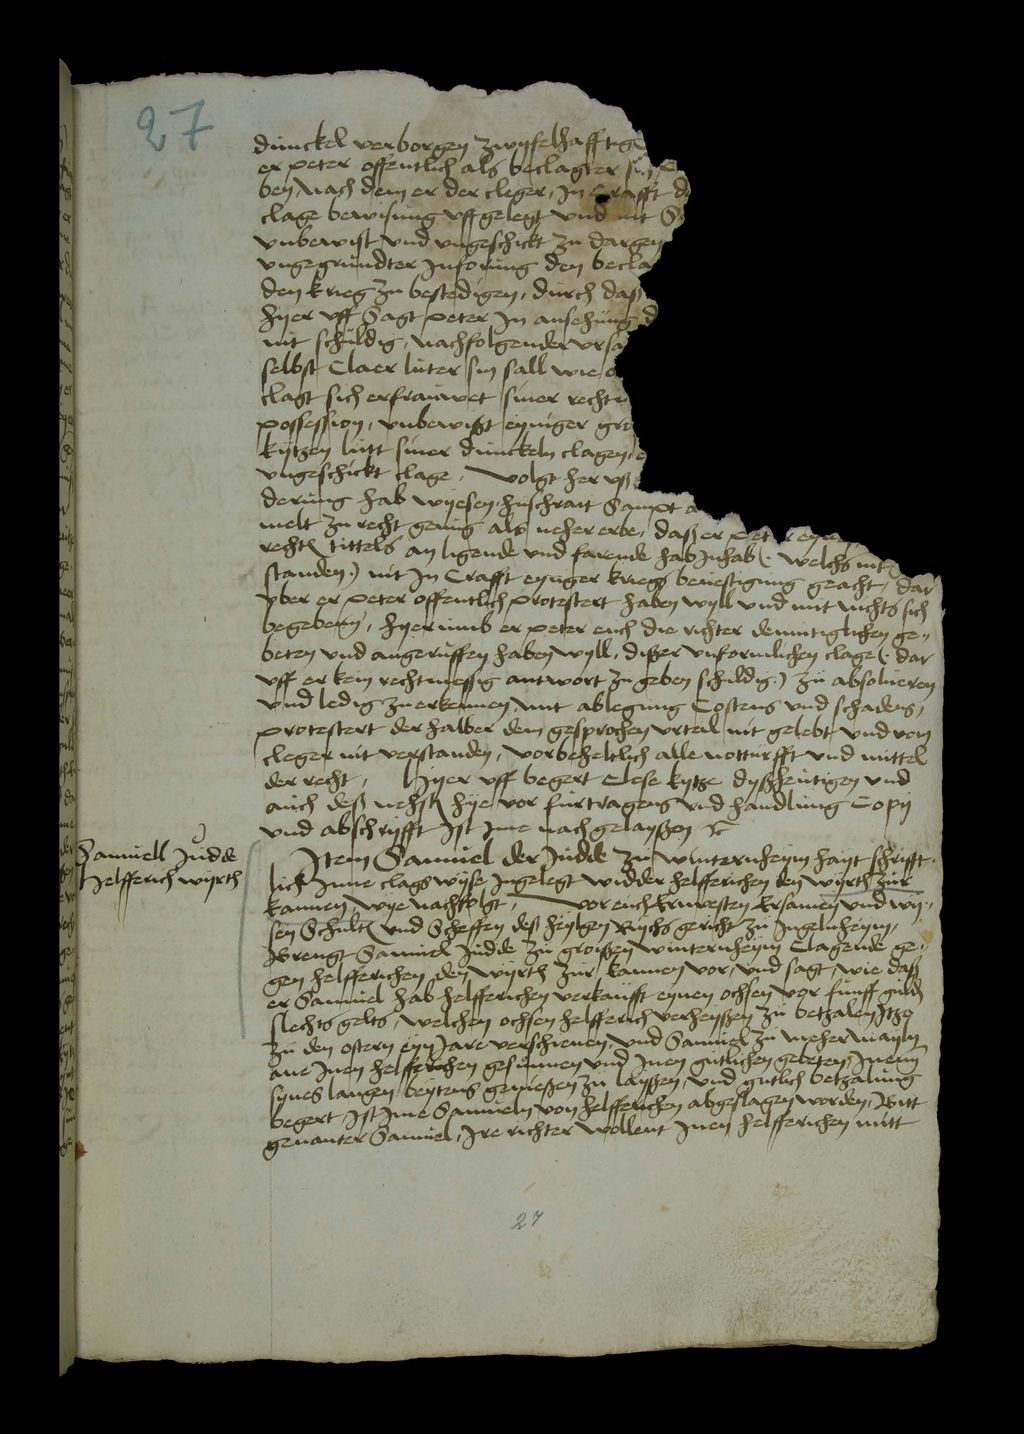 27
dunckel verborgen zwyfelhafftig
er peter offentlich als beclagter sin
ben, nach dem er der cleger, In Crafft d
clage bewisung uffgelegt und nit
unbewist und ungeschickt zu dargen
ungegrundter Inforung den becla
den krieg zu bestedigen, durch daß
hyer uff Sagt peter In ansehung d
nit schuldig, nachfolgender ursa
selbst Claer luter sin sall wie
clagt sich erfrauwet siner recht
possession, unbewist eyniger gr
kytzen lutt siner dunckeln clagen
ungeschickt clage, volgt her uß
derung hab wyesen, huschrait Sampt
melt zu recht genug als neher erbe, daß er peter
rechten tittels an ligende und farende hab Inhab (. welchs nit
standen .) nit In Crafft eyniger kriegs bevestigung geacht, dar
uber er peter offentlich protestert haben wyll und mit nichts sich
begebenn, hyerumb er peter euch die richter demutiglichen ge„
beten und angeruffen haben wyll, dißer unformlichen clage (. dar
uff er kein rechtmessig antwort zu geben schuldig .) zu absolveren
und ledig zuerkennen, mit ablegung Costens und schadens,
protestert der halber dem gesprochen urteil nit gelebt und von
cleger nit verstanden, vorbeheltlich alle notturfft und mittel
der recht, Hyer uff begert Clese kytze dyßheutigen und
auch deß nehsten hye vor furtragens und handlung Copij
und abschryfft Ist Ime nachgelayßen
Samuell Judde
Helfferich wyrth
Item Samuel der Judde zu winternheym hayt schrifft„
lich Inne clags wyse Ingelegt widder helfferichen den wyrth zur
kannen wye nachfolgt, vor euch Ernvesten Ersamen und wy„
sen Schulten und Scheffen deß heyligen Rychs gericht zu Ingelnheym,
Brengt Samuel Judde zu großen winternheym Clagende ge„
gen helfferichen den wyrth zur kannen vor, und sagt, wie daß
er Samuel hab helfferichen verkaufft eynen ochsen vor funff gulden
slechts gelts, welchen ochsen helfferich verheyßen zu betzalen Itzo
zu den ostern eyn Jare verschienen, und Samuel zu meher mayln
ane Inen helfferichen gesunnen und Inen gutlichen gebeten, Inenn
synes langen beytens genießen zu layßen, und gutlich betzalung
begert Ist Ime Samueln von helfferichen abgeslagen worden, Bitt
genanter Samuel, Ire richter wollent Inen helfferichen mitt
27